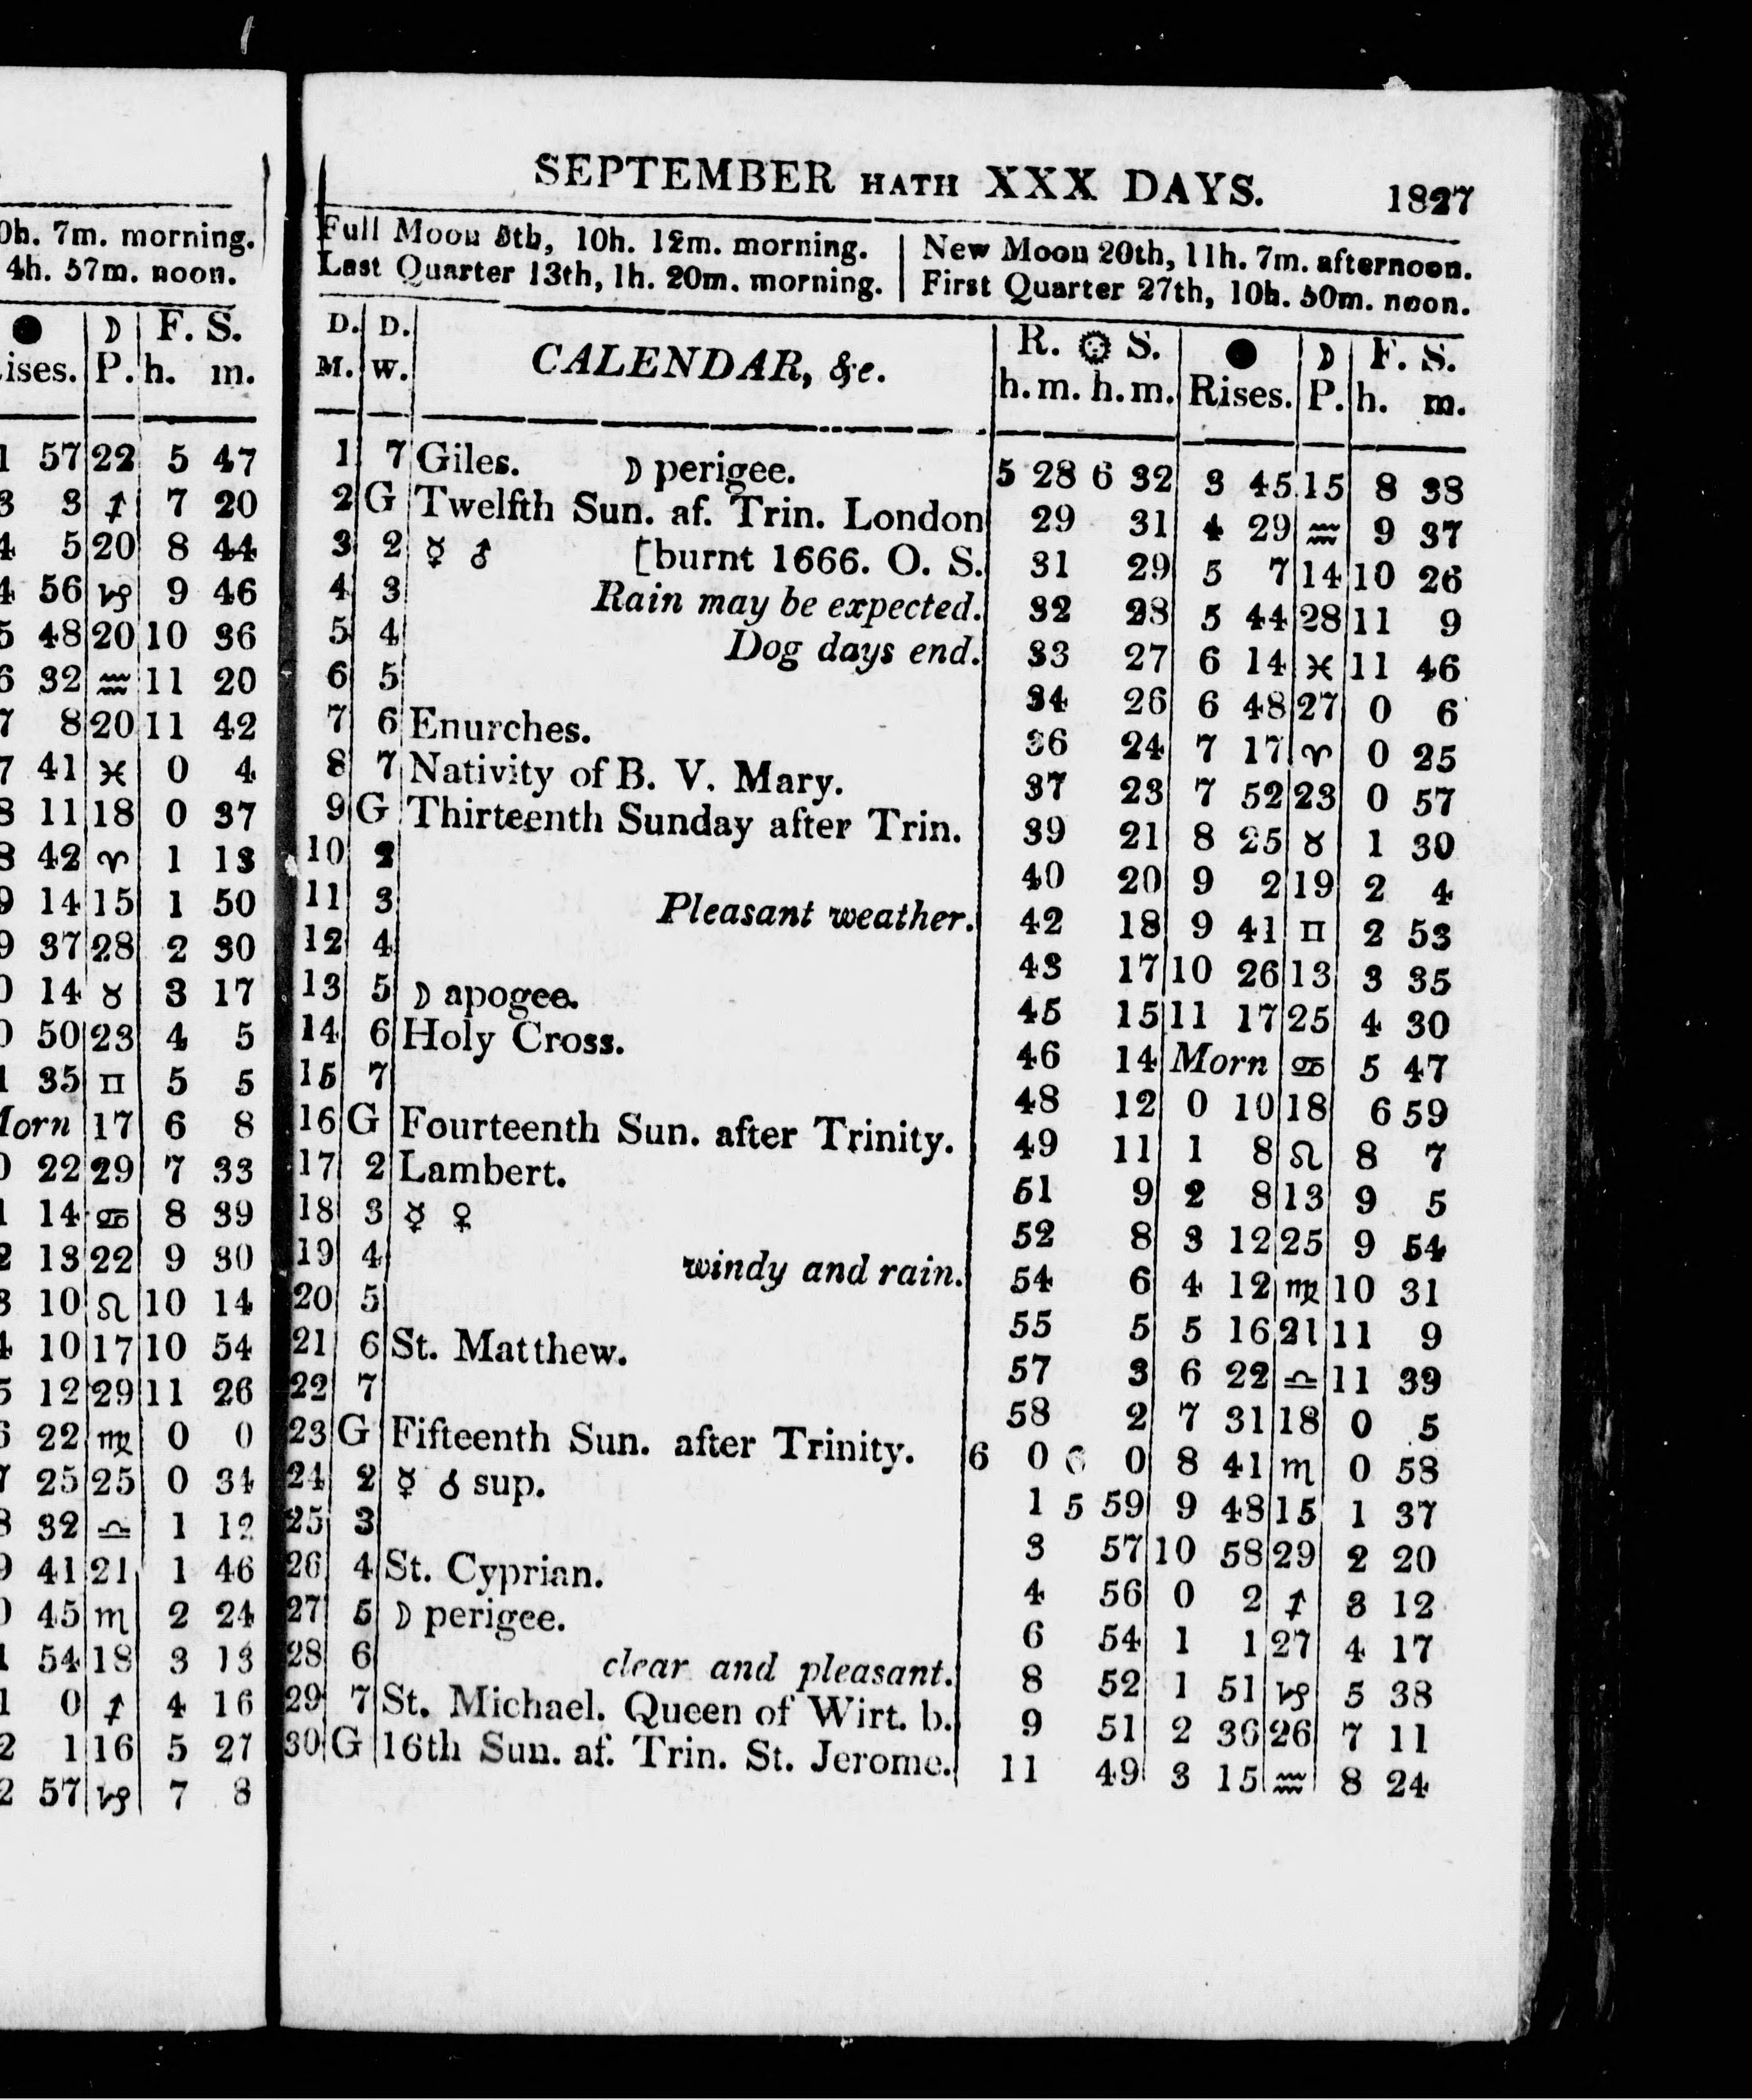 0h. 7m. morning.
4h. 57m. noon.
● ☽ F. S.
ises. P. h. m.
1 57 22 5 47
3 3 ♐ 7 20
4 5 20 8 44
4 56 ♑ 9 46
5 48 20 10 36
6 32 ♒ 11 20
7 8 20 11 42
7 41 ♓ 0 4
8 11 18 0 37
8 42 ♈ 1 13
9 14 15 1 50
9 37 28 2 30
0 14 ♉ 3 17
0 50 23 4 5
1 35 ♊ 5 5
Morn 17 6 8
0 22 29 7 33
1 14 ♋ 8 39
2 13 22 9 30
3 10 ♌ 10 14
4 10 17 10 54
5 12 29 11 26
6 22 ♍ 0 0
7 25 25 0 34
8 32 ♎ 1 12
9 41 21 1 46
0 45 ♏ 2 24
1 54 18 3 13
1 0 ♐ 4 16
2 1 16 5 27
2 57 ♑ 7 8
SEPTEMBER HATH XXX DAYS. 1827
Full Moon 5th, 10h. 12m. morning. New Moon 20th, 11h. 7m. afternoon.
Last Quarter 13th, 1h. 20m. morning. First Quarter 27th, 10h. 50m. noon.
D. D. CALENDAR, &c. R. ☼ S. ● ☽ F. S.
M. W. h. m. h. m. Rises. P. h. m.
1 7 Giles. ☽ perigee. 5 28 6 32 3 45 15 8 38
2 G Twelfth Sun. af. Trin. London 29 31 4 29 ♒ 9 37
3 2 ☿ ♂ [burnt 1666. O. S. 31 29 5 7 14 10 26
4 3 Rain may be expected. 32 28 5 44 28 11 9
5 4 Dog days end. 33 27 6 14 ♓ 11 46
6 5 34 26 6 48 27 0 6
7 6 Enurches. 36 24 7 17 ♈ 0 25
8 7 Nativity of B. V. Mary. 37 23 7 52 23 0 57
9 G Thirteenth Sunday after Trin. 39 21 8 25 ♉ 1 30
10 2 40 20 9 2 19 2 4
11 3 Pleasant weather. 42 18 9 41 ♊ 2 53
12 4 43 17 10 26 13 3 35
13 5 ☽ apogee. 45 15 11 17 25 4 30
14 6 Holy Cross. 46 14 Morn ♋ 5 47
15 7 48 12 0 10 18 6 59
16 G Fourteenth Sun. after Trinity. 49 11 1 8 ♌ 8 7
17 2 Lambert. 51 9 2 8 13 9 5
18 3 ☿ ♀ 52 8 3 12 25 9 54
19 4 windy and rain. 54 6 4 12 ♍ 10 31
20 5 55 5 5 16 21 11 9
21 6 St. Matthew. 57 3 6 22 ♎ 11 39
22 7 58 2 7 31 18 0 5
23 G Fifteenth Sun. after Trinity. 6 0 6 0 8 41 ♏ 0 58
24 2 ☿ ☌ sup. 1 5 59 9 48 15 1 37
25 3 3 57 10 58 29 2 20
26 4 St. Cyprian. 4 56 0 2 ♐ 3 12
27 5 ☽ perigee. 6 54 1 1 27 4 17
28 6 clear and pleasant. 8 52 1 51 ♑ 5 38
29 7 St. Michael. Queen of Wirt. b. 9 51 2 36 26 7 11
30 G 16th Sun. af. Trin. St. Jerome. 11 49 3 15 ♒ 8 24